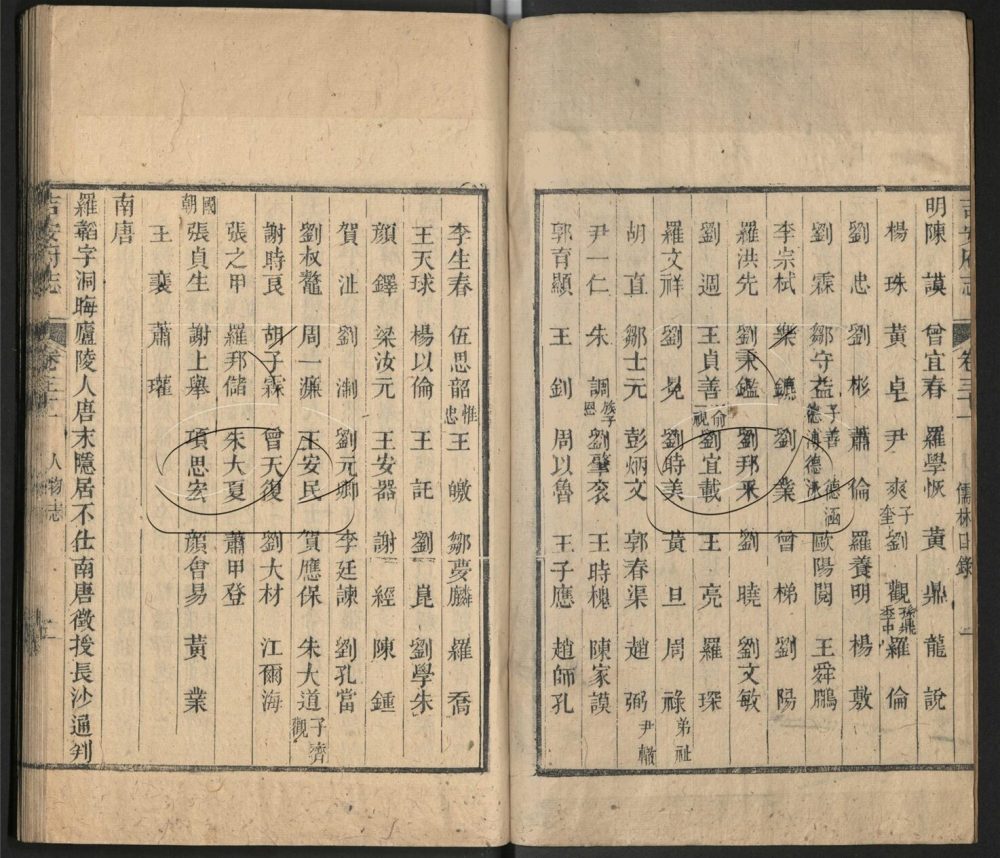 吉安府志 卷三十一 儒林目錄 一
明陳謨 曾宜春 羅學恢 黃鼎 龍說
楊珠 黃卓 尹爽子奎 劉觀孫鼎季中 羅倫
劉忠 劉彬 蕭倫 羅養明 楊敷
劉霖 鄒守益子善德涵德溥德泳 歐陽閱 王舜鵬
李宗栻 樂鐮 劉業 曾梯 劉陽
羅洪先 劉秉鑑 劉邦采 劉曉 劉文敏
劉週 王貞善俞一視 劉宜載 王亮 羅琛
羅文祥 劉晃 劉時美 黃旦 周祿弟祉
胡直 鄒士元 彭炳文 郭春渠 趙弼尹轍
尹一仁 朱調族子恩 劉肇袞 王時槐 陳家謨
郭育顯 王釗 周以魯 王子應 趙師孔
李生春 伍思韶惟忠 王皦 鄒夢麟 羅喬
王天球 楊以倫 王託 劉崑 劉學朱
顏鐸 梁汝元 王安器 謝經 陳鍾
賀沚 劉淛 劉元卿 李廷諫 劉孔當
劉叔鰲 周一濂 王安民 賀應保 朱大道子濟觀
謝時良 胡子霖 曾天復 劉大材 江爾海
張之甲 羅邦儲 朱大夏 蕭甲登
國朝 張貞生 謝上舉 項思宏 顏曾易 黃業
王襄 蕭瓘
南唐
羅韜字洞晦廬陵人唐末隱居不仕南唐徵授長沙通判
吉安府志 卷三十一 人物志